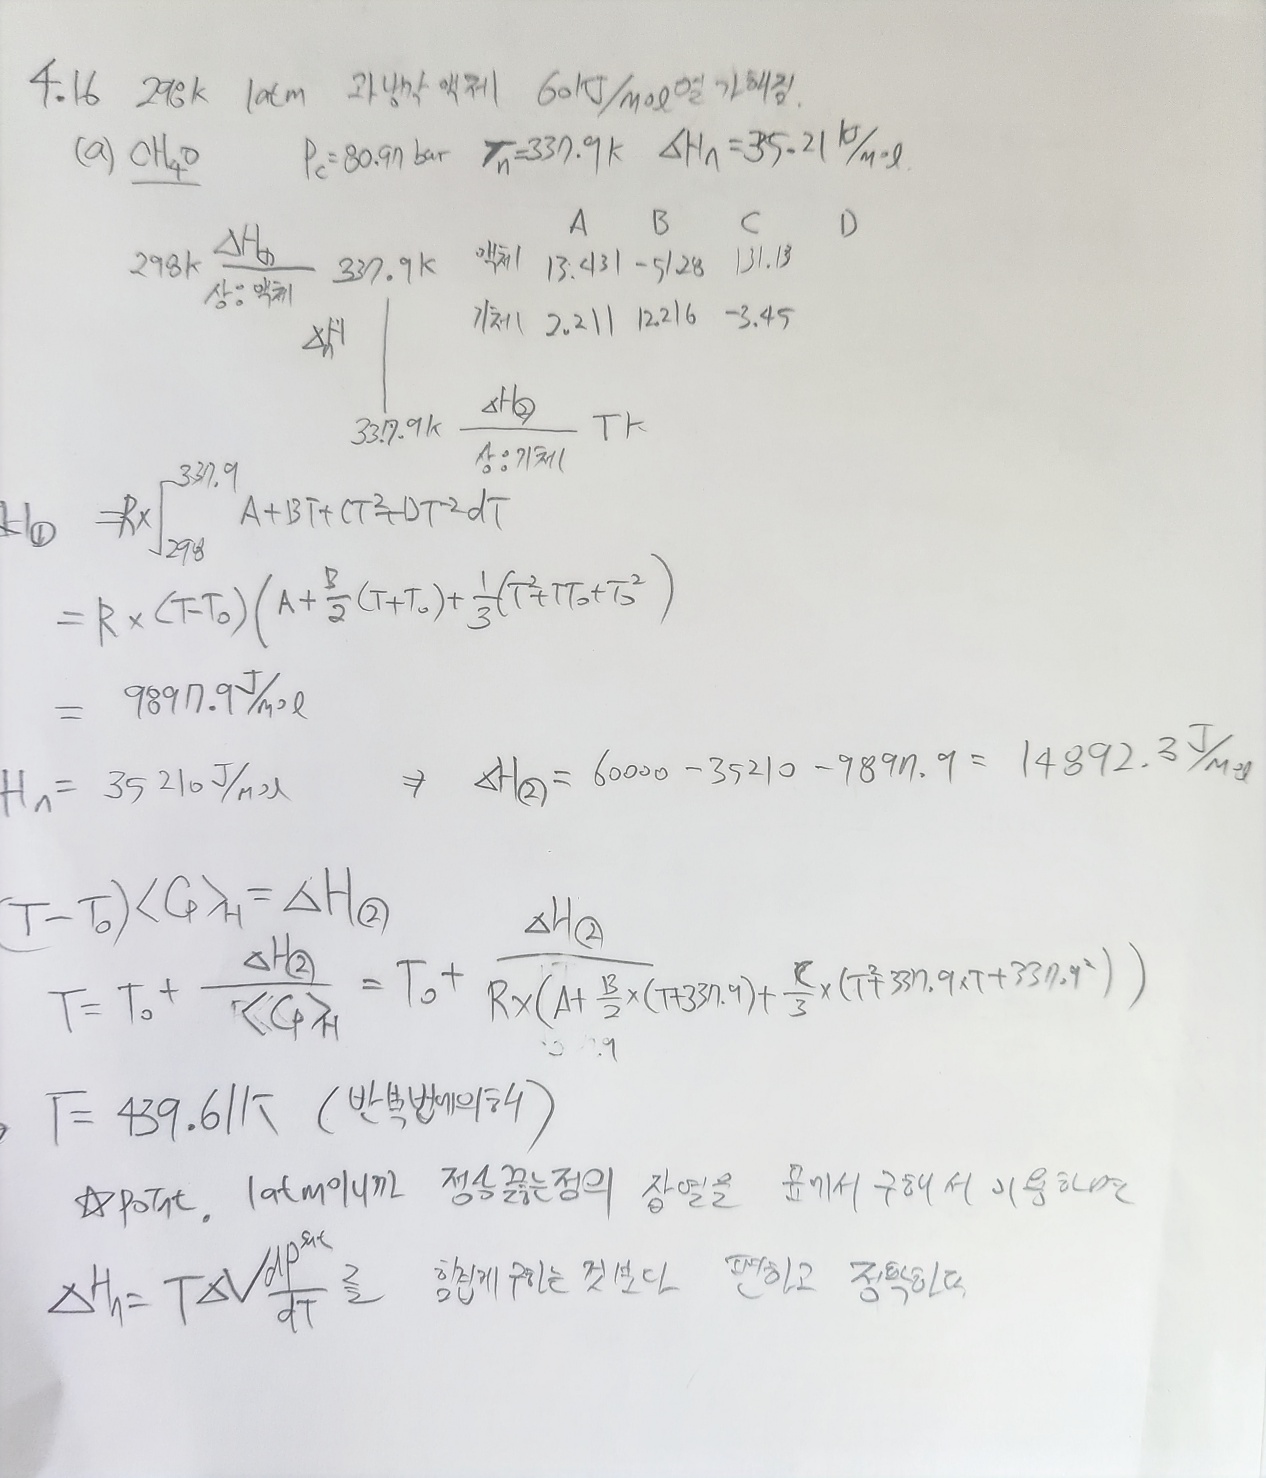 4.16 298K 1atm 과냉각 액체 60kJ/mol열 가해짐.
(a) CH4O Pc=80.97 bar Tn=337.9K ΔHn=35.21 kJ/mol.
A B C D
298K ΔH① 337.9K 액체 13.431 -51.28 131.13
상:액체
기체 2.211 12.216 -3.45
ΔHn
337.9K ΔH② TK
상:기체
H① =R×∫_298^337.9 A+BT+CT²+DT-2dT
= R×(T-T₀)(A+B/2(T+T₀)+1/3(T²+TT₀+T₀²)
= 9897.9J/mol
Hn= 35210J/mol → ΔH②= 60000-35210-9897.9= 14892.3 J/mol
(T-T₀)<Cp>H=ΔH②
T=T₀+ ΔH②/<Cp>H = T₀+ ΔH②/R×(A+B/2×(T+337.9)+C/3×(T²+337.9×T+337.9²))
T= 439.61K (반복법에의해)
☆Point. 1atm이니까 정상끓는점의 잠열을 표에서 구해서 이용하면
ΔHn= TΔV dPsat/dT 를 힘겹게 구하는 것보다 편하고 정확하다